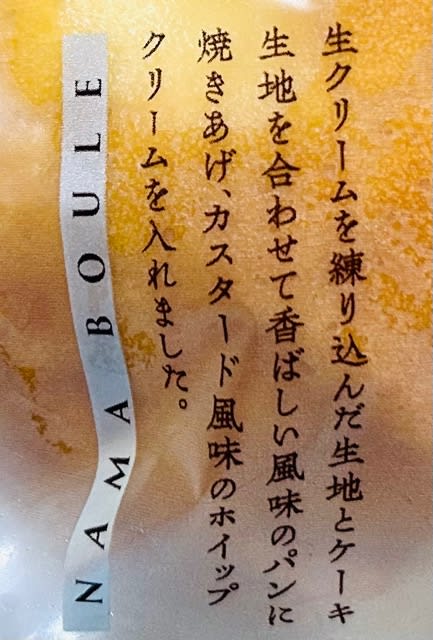 生クリームを練り込んだ生地とケーキ
生地を合わせて香ばしい風味のパンに
焼きあげ、カスタード風味のホイップ
クリームを入れました。
NAMA BOULE